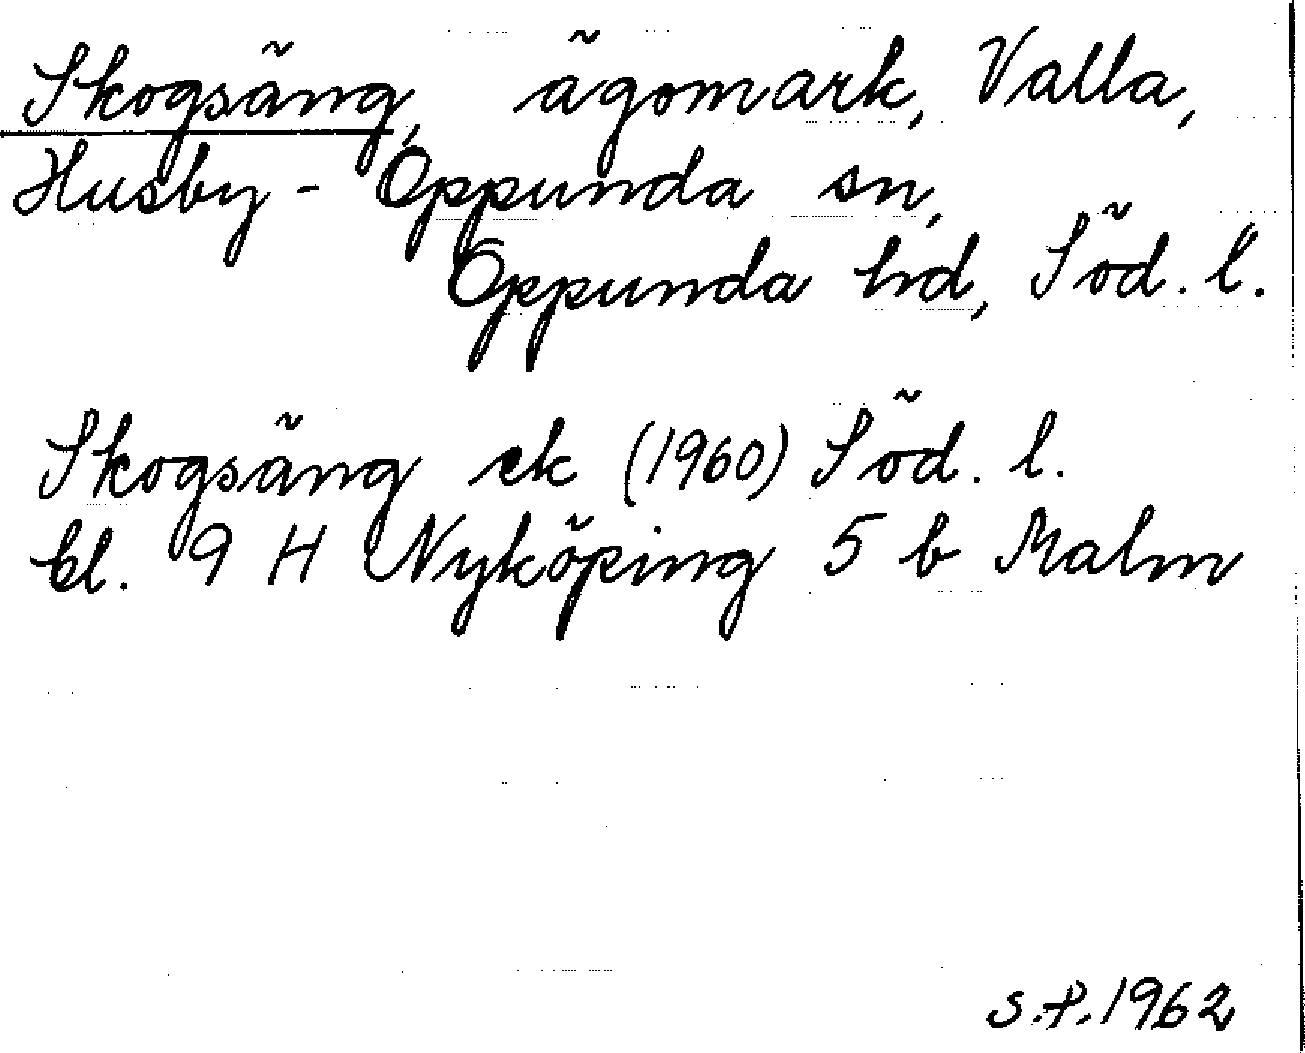 Skogsäng, ägomark, Valla,
Husby - Oppunda sn,
Oppunda hd, Söd. l.
Skogsäng ek (1960) Söd. l.
bl. 9 H Nyköping 5 b Malm
S.P. 1962